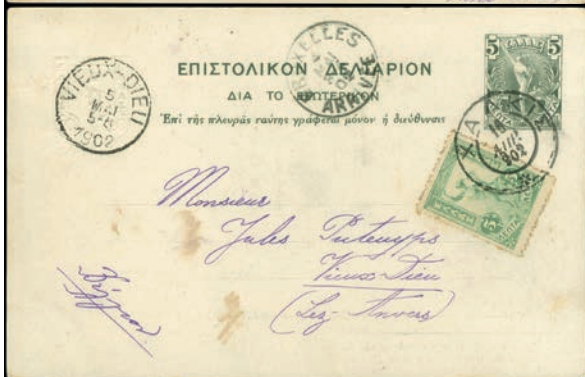 5 ΕΛΛΑΣ 5
ΕΠΙΣΤΟΛΙΚΟΝ ΔΕΛΤΑΡΙΟΝ
ΔΙΑ ΤΟ ΕΣΩΤΕΡΙΚΟΝ
Ἐπὶ τῆς πλευρᾶς ταύτης γράφεται μόνον ἡ διεύθυνσις
VIEUX-DIEU
5
MAI
5-6
1902
BRUXELLES
ARRIVÉE
ΧΑΛΚΙΣ
902
5
Monsieur
Jules
Vieux-Dieu
(Lez-Anvers)